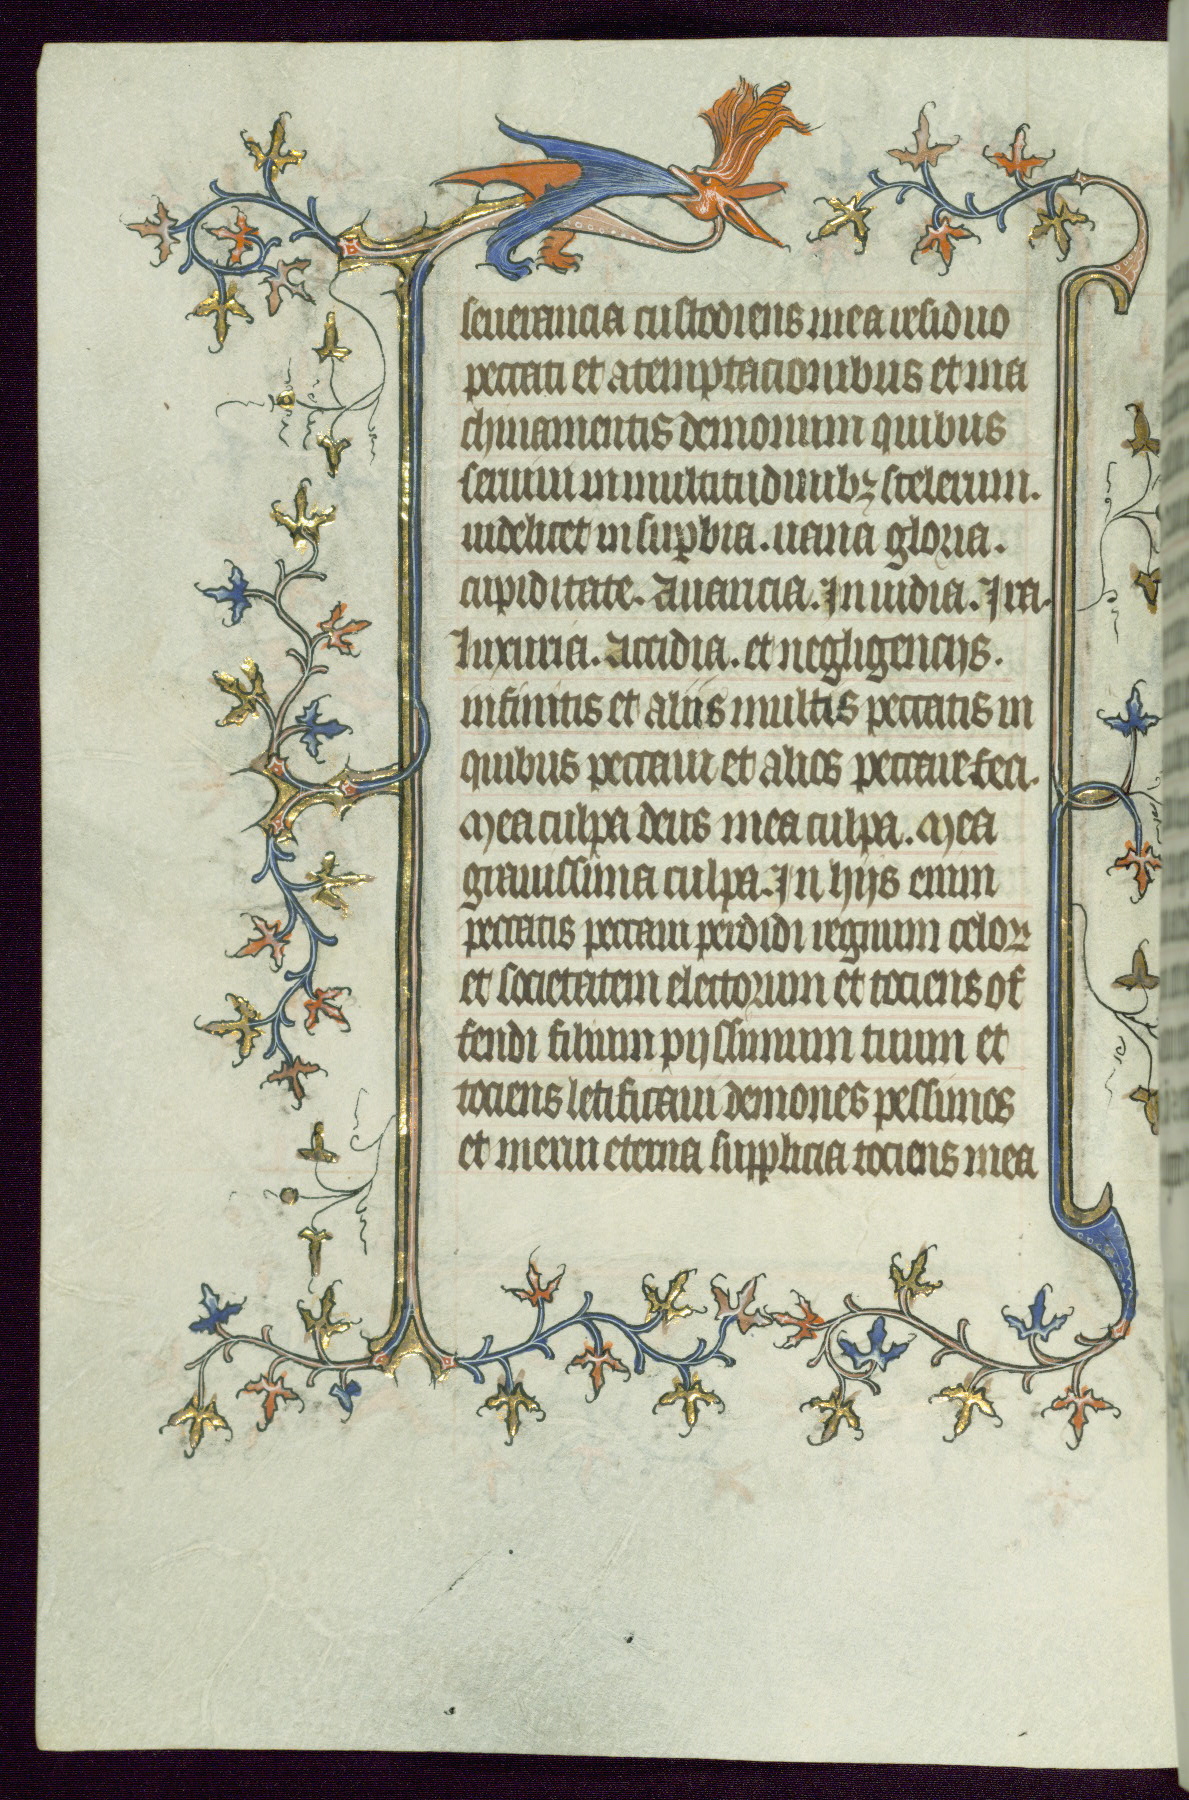 seuerancia custodiens me a residuo
peccati et a temptacionibus et ma
chinamentis demonum quibus
seruiui in multitudinibꝫ scelerum.
uidelicet in suꝑbia. uana gloria.
cupiditate. Auaricia. Inuidia. Ira.
luxuria. Accidia. et negligencijs.
infinitis et aliis multis peccatis in
quibus peccaui et alios peccare feci.
Mea culpa deus mea culpa. Mea
grauissima culpa. In hijs enim
peccatis peccaui perdidi regnum celoꝝ
et societatem electorum et tociens of
fendi filium pijssimum tuum et
tociens letificaui demones pessimos
et merui eterna supplicia tociens mea